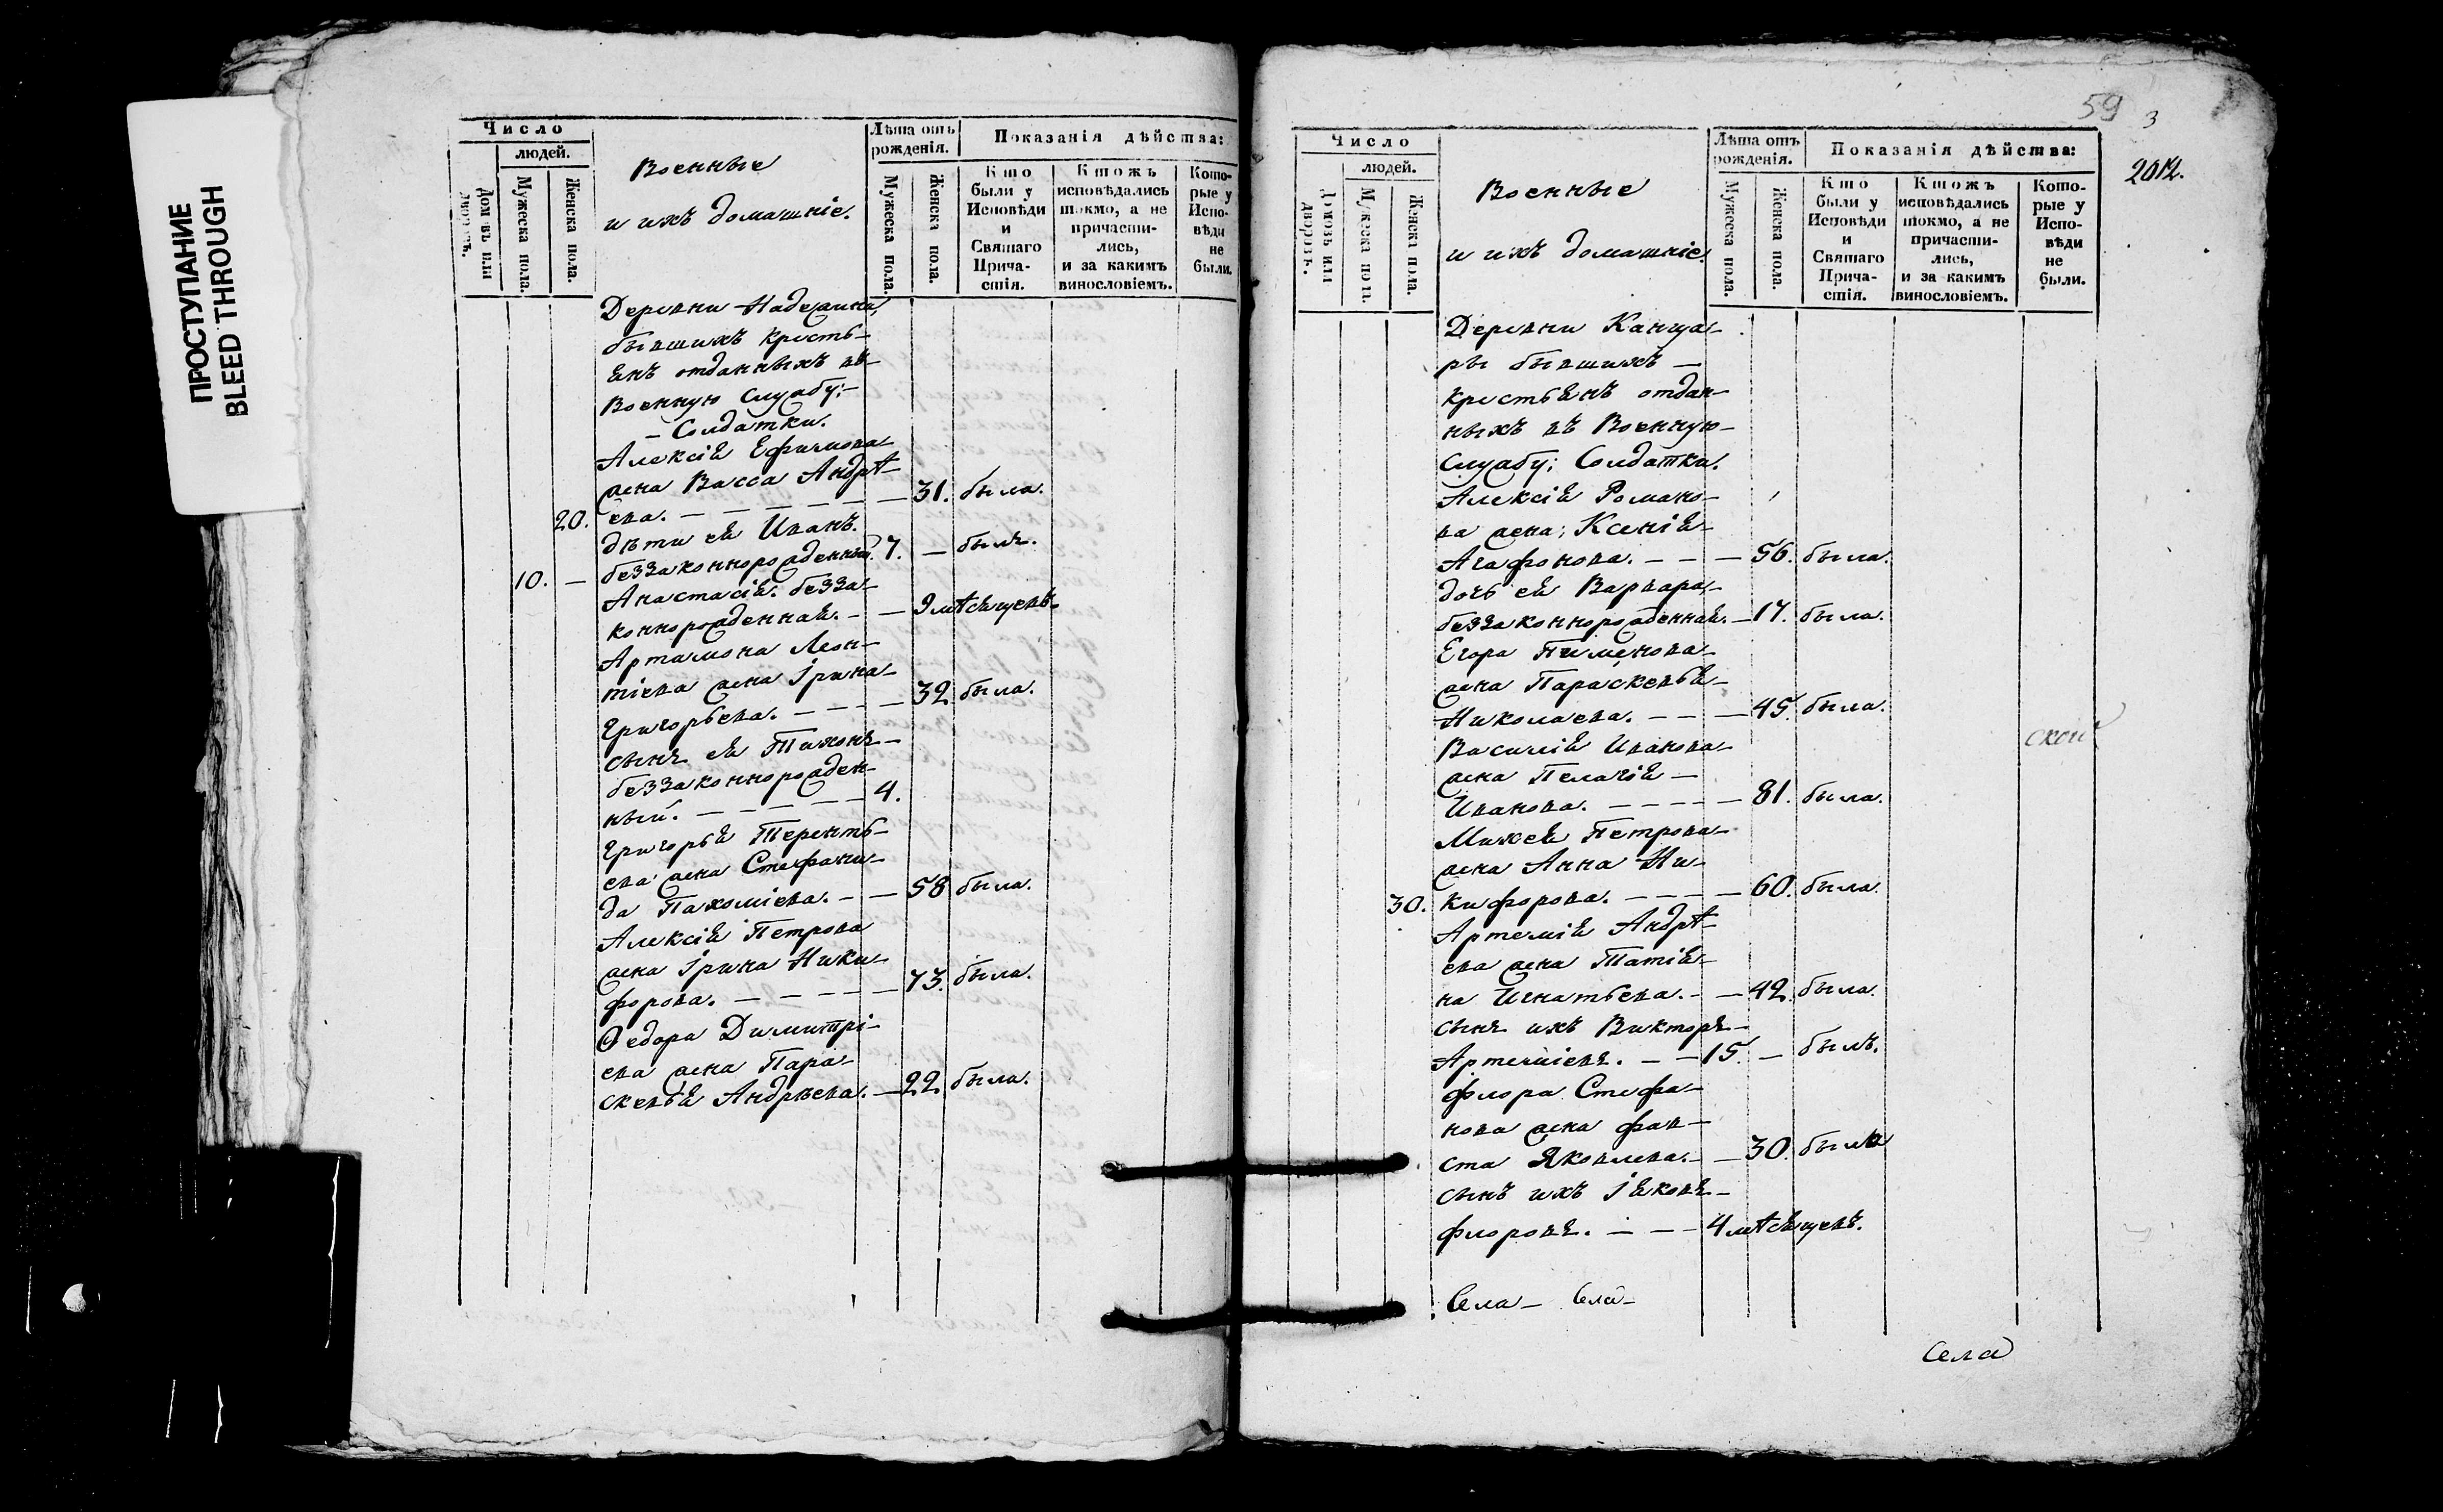 ПРОСТУПАНИЕ
BLEED THROUGH
Число
людей.
Домовъ или дворовъ.
Мужеска пола.
Женска пола.
Военные
и ихъ домашніе.
Лѣта отъ рожденія.
Мужеска пола.
Женска пола.
Показанія дѣйства:
Кто были у Исповѣди и Святаго Причастія.
Ктожъ исповѣдались токмо, а не причастились, и за какимъ винословіемъ.
Которые у Исповѣди не были.
Деревни Надеждина,
бывшихъ кресть-
янъ отданныхъ въ-
Военную Службу;-
- Солдатки.
Алексія Ефимова-
жена Васса Андрѣ-
20. ева. - - - - - - 31. была.
дѣти ея Иванъ.
10. - беззаконнорожденный. 7. - былъ.
Анастасія. безза-
коннорожденная. - - 9 мѣсяцевъ.
Артамона Леон-
тіева жена Ірина-
Григорьева. - - - - 32. была.
сынъ ея Тихонъ-
беззаконнорожден-
ный. - - - - - 4.
Григорья Теренть-
ева жена Стефани-
да Пахоміева. - - 58 была.
Алексія Петрова
жена Ірина Ники-
форова. - - - - - 73. была.
Ѳедора Димитрі-
ева жена Пара-
скевья Андрѣева. - 22. была.
59
3
2012.
Число
людей.
Домовъ или дворовъ.
Мужеска пола.
Женска пола.
Военные
и ихъ домашніе.
Лѣта отъ рожденія.
Мужеска пола.
Женска пола.
Показанія дѣйства:
Кто были у Исповѣди и Святаго Причастія.
Ктожъ исповѣдались токмо, а не причастились, и за какимъ винословіемъ.
Которые у Исповѣди не были.
Деревни Канца-
ры бывшихъ -
крестьянъ отдан-
ныхъ въ Военную-
Службу; Солдатки.
Алексія Романо-
ва жена; Ксенія-
Агафонова. - - - 56. была.
дочь ея Варвара,-
беззаконнорожденная. - 17. была.
Егора Пименова-
жена Параскевья-
Николаева. - - - 45. была.
Василія Иванова-
жена Пелагія -
Иванова. - - - - 81. была.
Михея Петрова-
жена Анна Ни-
30. кифорова. - - - - 60. была.
Артемія Андрѣ-
ева жена Татія-
на Игнатьева. - - 42. была.
сынъ ихъ Викторъ-
Артеміевъ. - - 15. - былъ.
Флора Стефа-
нова жена Фав-
ста Яковлева. - - 30. была
сынъ ихъ Іяковъ-
Флоровъ. - - - 4 мѣсяцевъ.
Села - Села -
Села